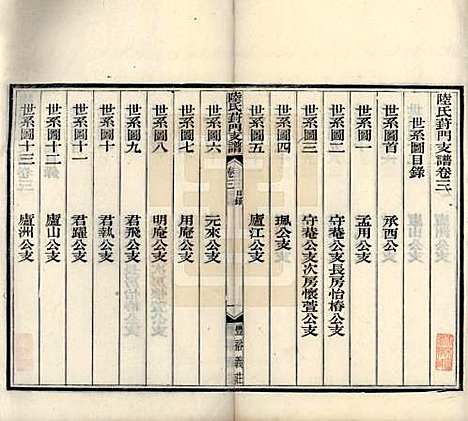 陸氏葑門支譜卷三
世系圖目錄
世系圖首 丞酉公支
世系圖一 孟用公支
世系圖二 守菴公支長房怡椿公支
世系圖三 守菴公支次房懷萱公支
世系圖四 珮公支
世系圖五 廬江公支
陸氏葑門支譜 卷三 目錄 一 豐裕義莊
世系圖六 元來公支
世系圖七 用庵公支
世系圖八 明庵公支
世系圖九 君飛公支
世系圖十 君執公支
世系圖十一 君躍公支
世系圖十二 廬山公支
世系圖十三 廬洲公支